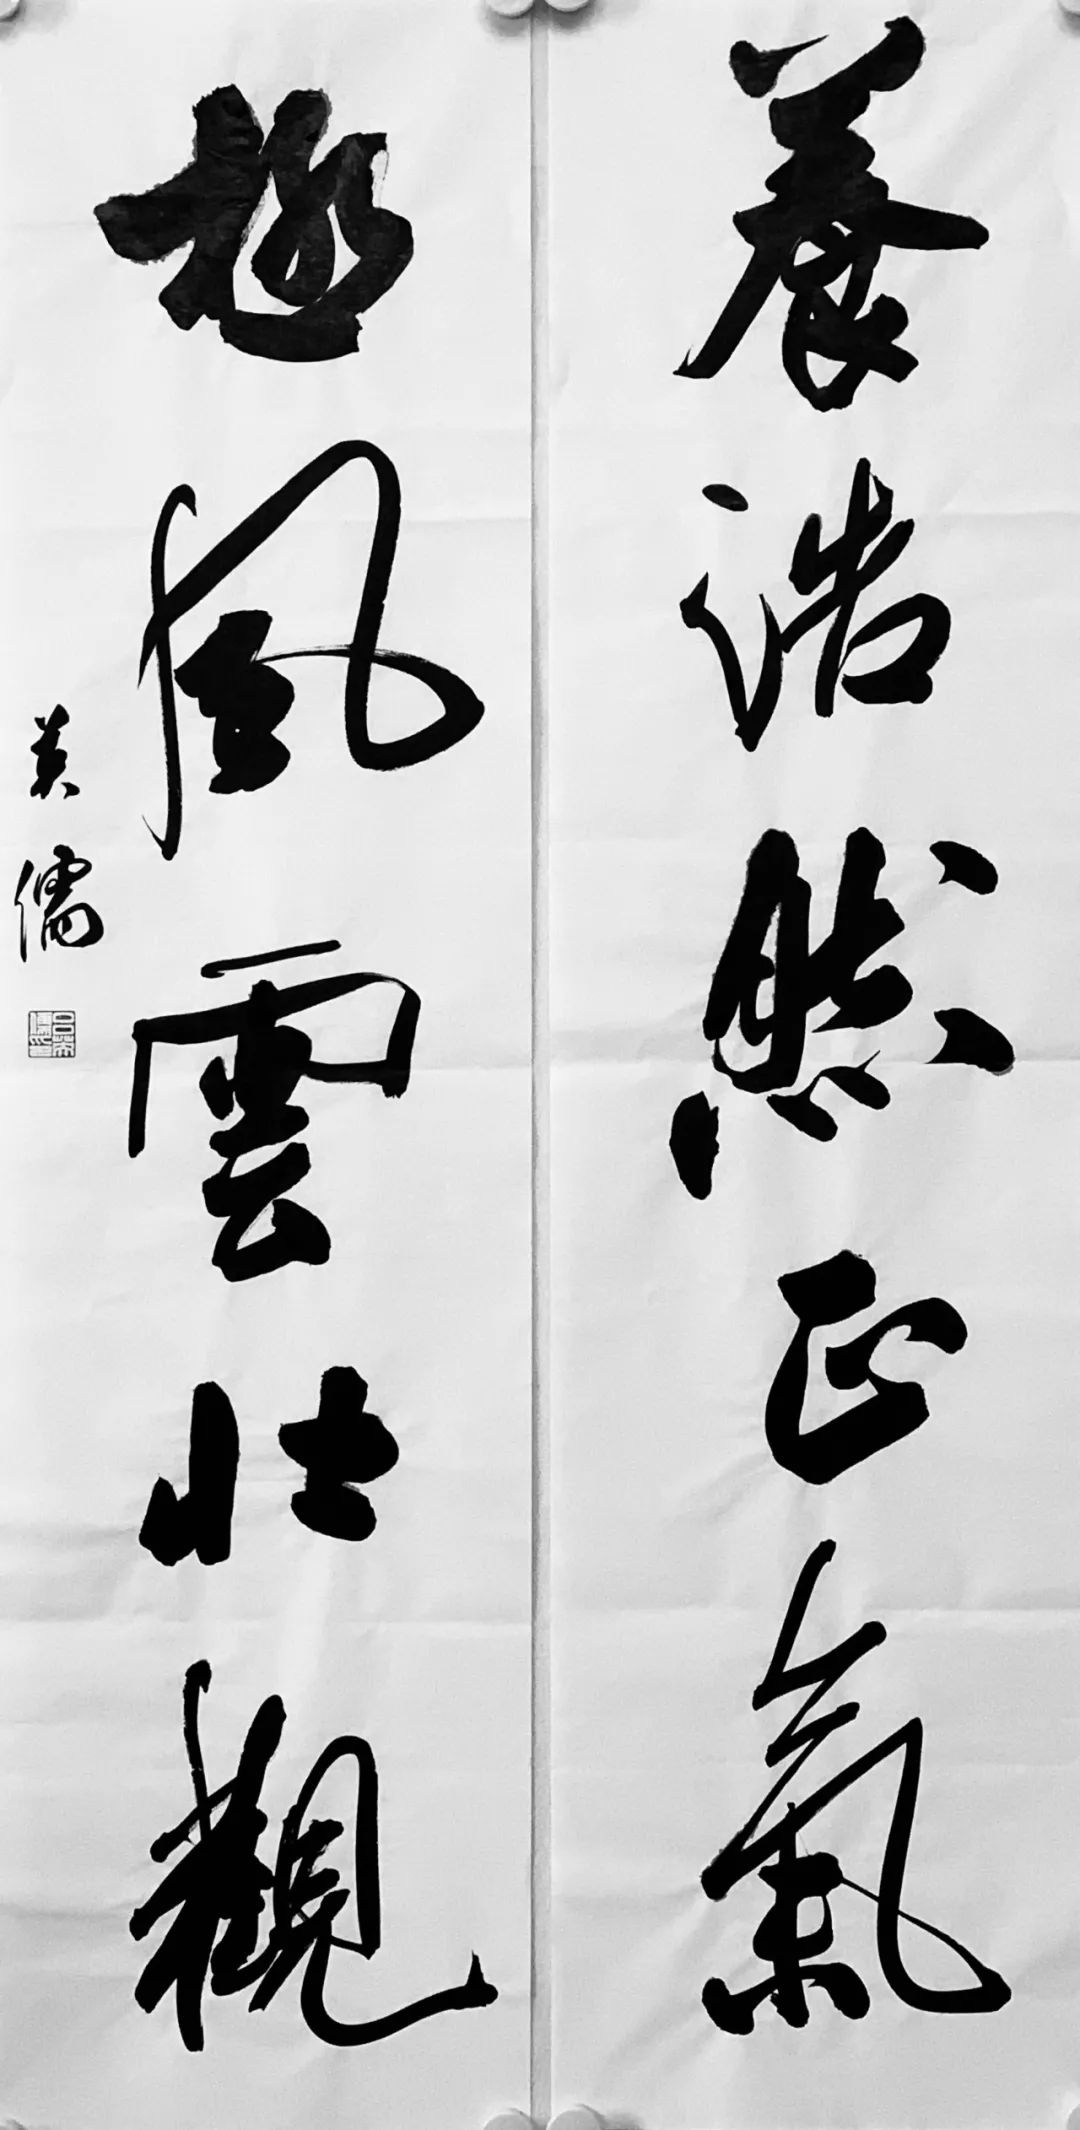 養浩然正氣
極風雲壯觀
美儒